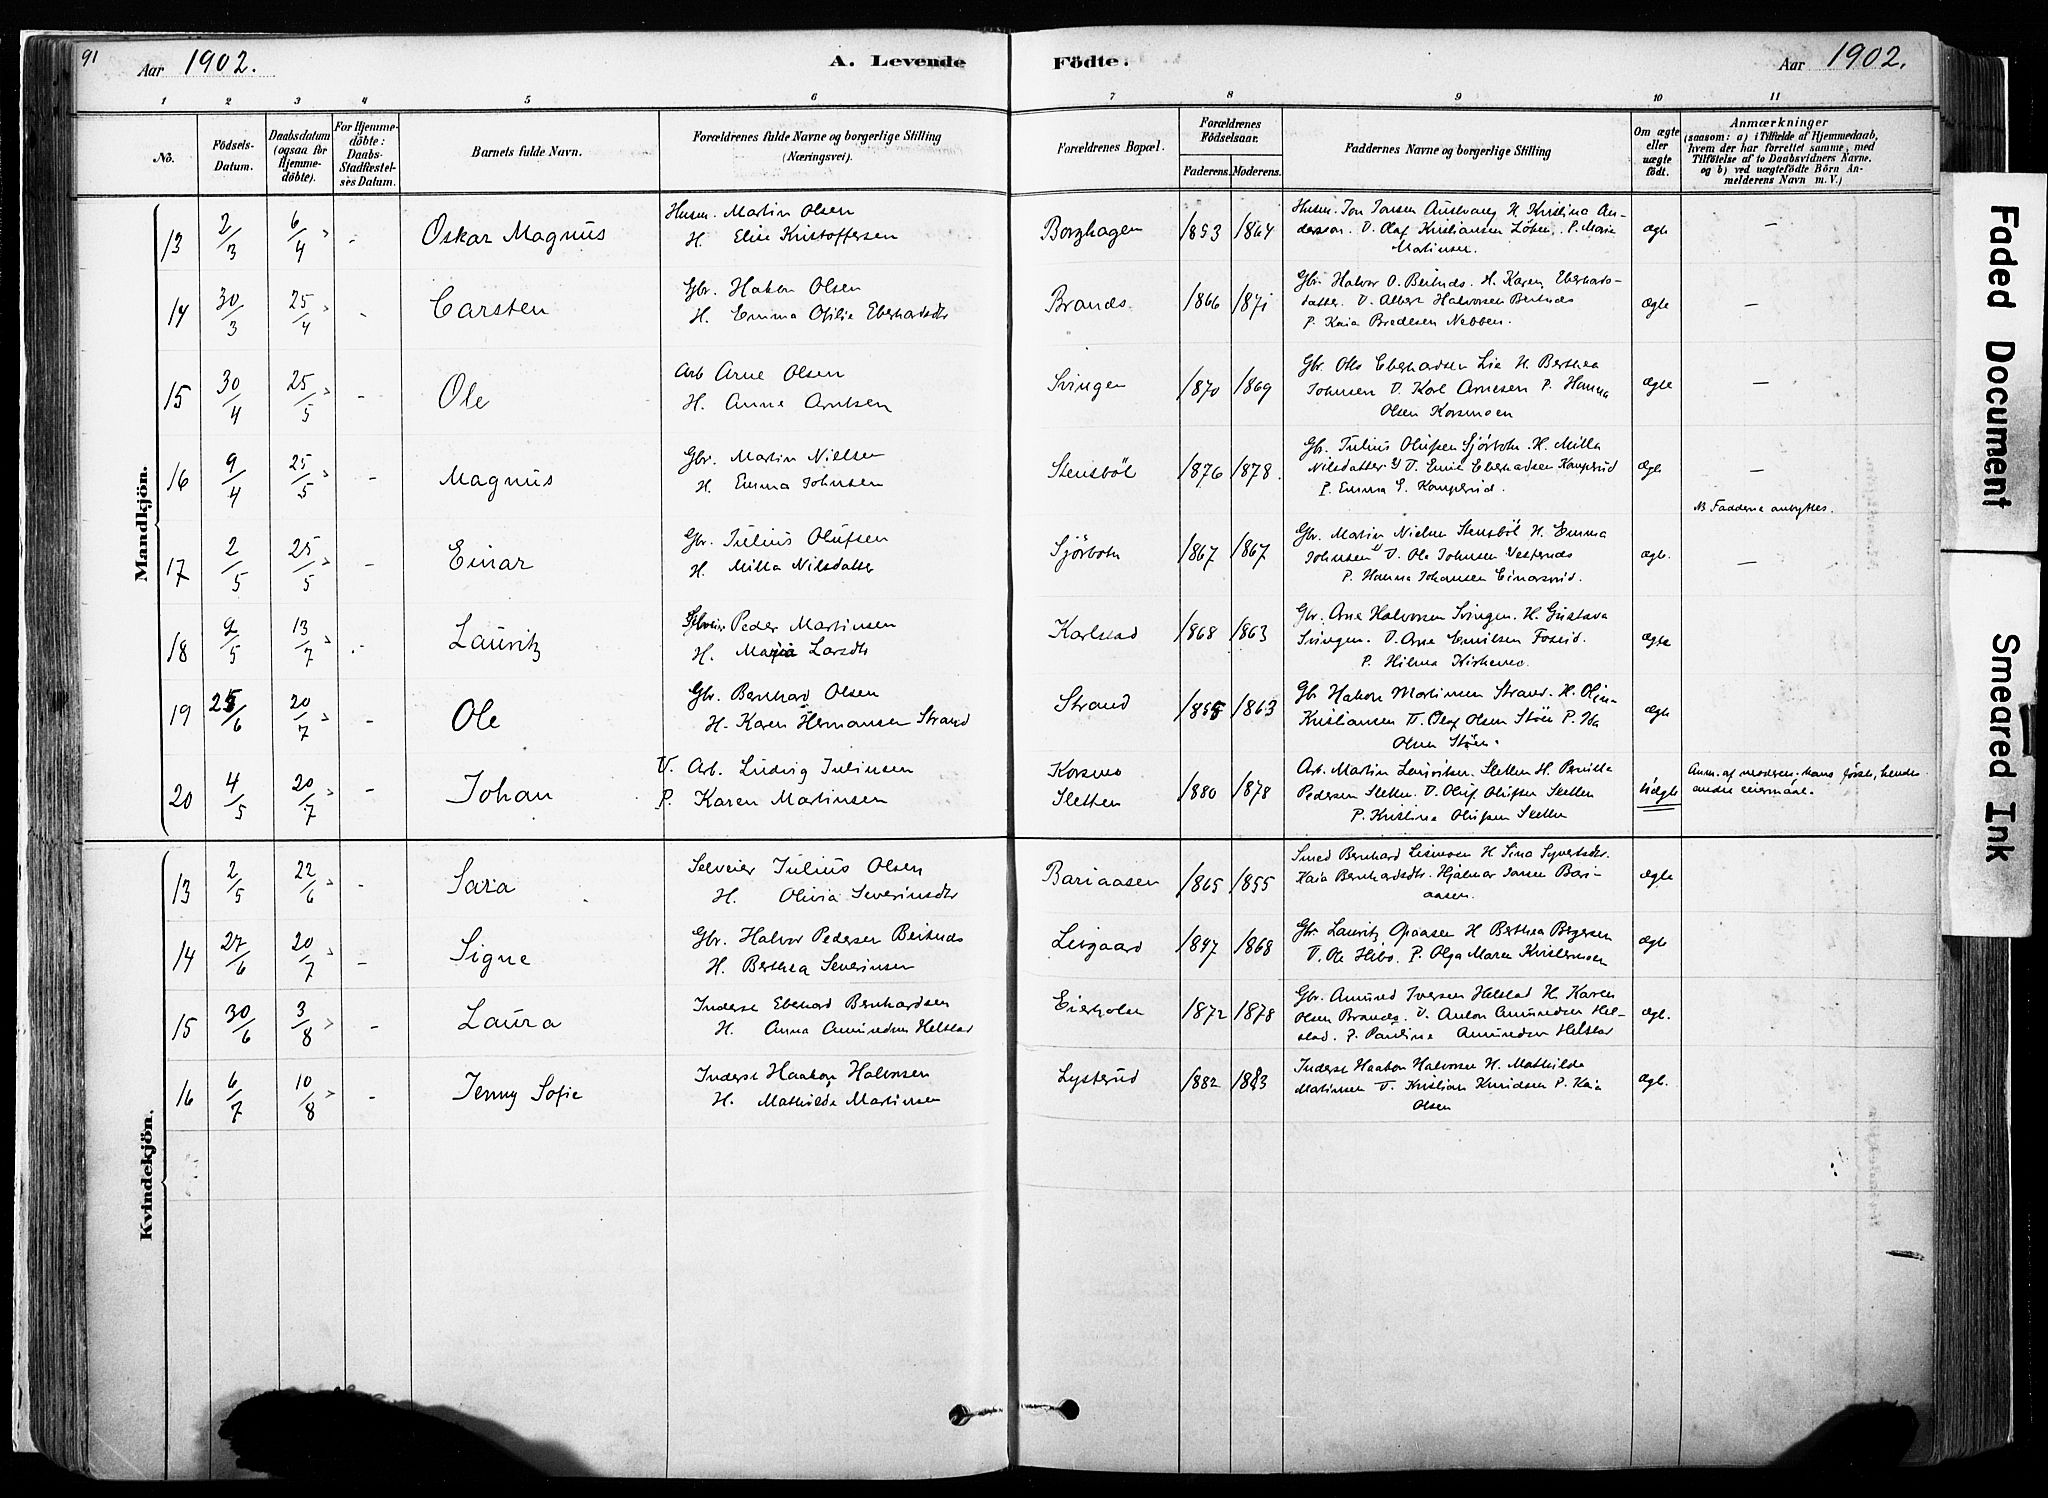 91
Aar 1902.
A. Levende Födte.
Aar 1902.
1 2 3 4 5 6 7 8 9 10 11
No.
Födsels-Datum.
Daabsdatum (ogsaa for Hjemme-döbte).
For Hjemme-döbte: Daabs-Stadfæstel-ses Datum.
Barnets fulde Navn.
Forældrenes fulde Navne og borgerlige Stilling (Næringsvei).
Forældrenes Bopæl.
Forældrenes Födselsaar.
Faderens. Moderens.
Faddernes Navne og borgerlige Stilling
Om ægte eller uægte födt.
Anmærkninger
(saasom: a) i Tilfælde af Hjemmedaab,
hvem der har forrettet samme, med
Tilföielse af to Daabsvidners Navne,
og b) ved uægtefödte Börn An-
melderens Navn m. V.)
Mandkjön.
13 2/3 6/4 - Oskar Magnus
Husm. Martin Olsen
H. Elise Kristoffersen
Borghagen 1853 1864
Husm. Jon Jonsen H. Kristina An-
derson. V. Olaf Kristiansen P. Marie
Martinsen.
ægte —
14 30/3 25/4 - Carsten
Gbr. Hakon Olsen
H. Emma Otilie Eberhardsdtr
Brands. 1866 1871
Gbr. Halvor O. Beitnds. H. Karen Eberhards-
datter. V. Albert Halvorsen Beitnds
P. Kaia Bredesen Nebben.
ægte —
15 30/4 25/5 - Ole
Arb Arne Olsen
H. Anne Arntsen
Svingen 1870 1869
Gbr. Otto Eberhardsen Lie H. Berthea
Johnsen V. Karl Arnesen P. Hanna
Olsen Korsmoen
ægte —
16 9/4 25/5 - Magnus
Gbr. Martin Nielsen
H. Emma Johnsen
Stensböl 1876 1878.
Gbr. Julius Olufsen Sjörboth. H. Milla
Nilsdatter V. Emil Eberhardsen Kamperud
P. Emma E. Kamperud.
ægte —
NB Fadderne ombyttes.
17 2/5 25/5 - Einar
Gbr. Julius Olufsen
H. Milla Nilsdatter
Sjörboth 1867 1867
Gbr. Martin Nielsen Stensböl H. Emma
Johnsen V. Ole Johnsen
P. Hanna Johansen Einarsrud.
ægte. —
18 2/5 13/7 - Lauritz
Peder Martinsen
H. Maria Larsdtr
Karlstad 1868 1863
Gbr. Arne Halvorsen Svingen. H. Gustava
Svingen. V. Arne Emilsen Foseid.
P. Hilma
ægte
19 25/6 20/7 - Ole
Gbr. Bernhard Olsen
H. Karen Hermansen Strand
Strand 1855 1863
Gbr Hakon Martinsen Strand. H. Olina
Kristiansen V. Olaf Olsen Stöen P. Ida
Olsen Stöen.
ægte
20 4/5 20/7 - Johan
V. Arb. Ludvig Juliusen
P. Karen Martinsen
Korsmo
Sletten 1880 1878
Arb. Martin Lauritsen Sletten H. Pernilla
Pedersen Sletten. V. Oluf Olufsen Sletten
P. Kristina Olufsen Sletten
Uægte
Anm. af moderen. hans förste, hendes
andre leiermaal.
Kvindekjön.
13 2/5 22/6 - Sara
Selveier Julius Olsen
H. Olivia Severinsdtr
Bariaasen 1865 1855
Smed Bernhard H Sina Syvertsdtr.
Kaia Bernhardsdtr. Hjalmar Jansen Bari-
aasen.
ægte
14 27/6 20/7 - Signe
Gbr. Halvor Pedersen Beitnds
H. Berthea Severinsen
Lisgaard 1847 1868
Gbr. Lauritz Opaasen H Berthea Bergersen
V. Ole Hebo. P. Olga Maren
ægte
15 30/6 3/8 - Laura
Inderst Eberhard Bernhardsen
H. Anna Amundsen Helstad
Eierholen 1872 1878
Gbr. Amund Iversen Helstad H. Karen
Olsen Brands. V. Anton Amundsen Hel-
stad. P. Pauline Amundsen Helstad
ægt.
16 6/7 10/8 - Jenny Sofie
Inderst Haakon Halvorsen
H. Mathilde Martinsen
Lysterud 1882 1883
Inderst Haakon Halvorsen H. Mathilde
Martinsen V. Kristian Knudsen P. Kaia
Olsen
ægt.
Faded Document
Smeared Ink